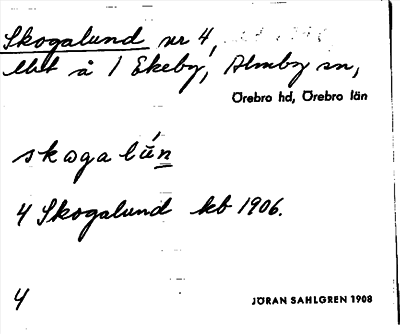 Skogalund nr 4,
å 1 Ekeby, Almby sn,
Örebro hd, Örebro län
skogalún
4 Skogalund kb 1906.
4
JÖRAN SAHLGREN 1908